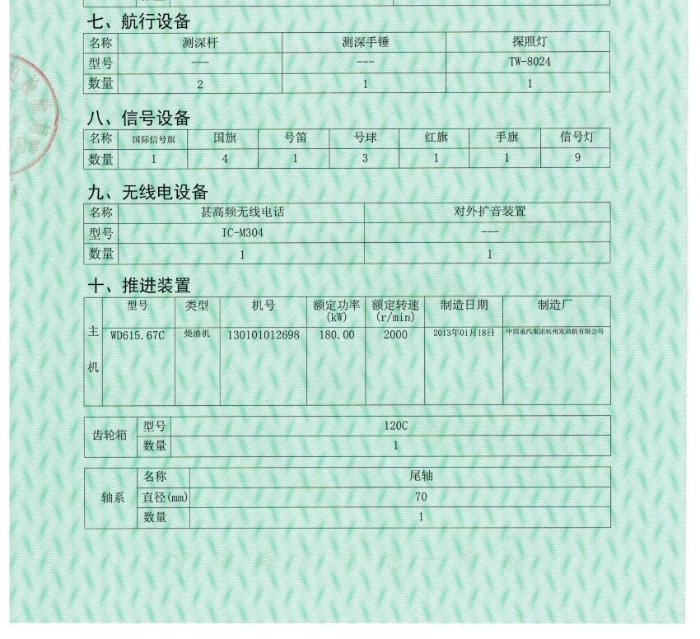 七、航行设备
名称 测深杆 测深手锤 探照灯
型号 --- --- TW-8024
数量 2 1 1
八、信号设备
名称 国际信号旗 国旗 号笛 号球 红旗 手旗 信号灯
数量 1 4 1 3 1 1 9
九、无线电设备
名称 甚高频无线电话 对外扩音装置
型号 IC-M304 ---
数量 1 1
十、推进装置
主机 型号 类型 机号 额定功率(kW) 额定转速(r/min) 制造日期 制造厂
WD615.67C 柴油机 130101012698 180.00 2000 2013年01月18日 中国重汽集团杭州发动机有限公司
齿轮箱 型号 120C
数量 1
轴系 名称 尾轴
直径(mm) 70
数量 1